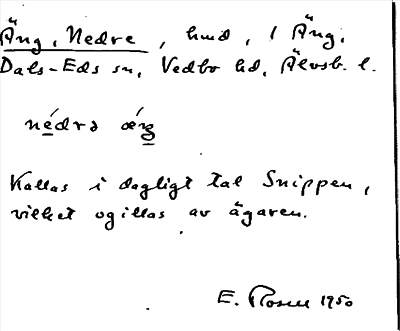 Äng, Nedre, hmd, 1 Äng,
Dals-Eds sn, Vedbo hd, Älvsb. l.
nédrə ǽŋ
Kallas i dagligt tal Snippen,
vilket ogillas av ägaren.
E. Rosell 1950